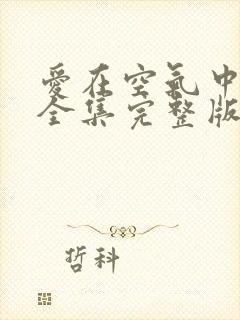 爱在空氣中
全集完整版
哲科